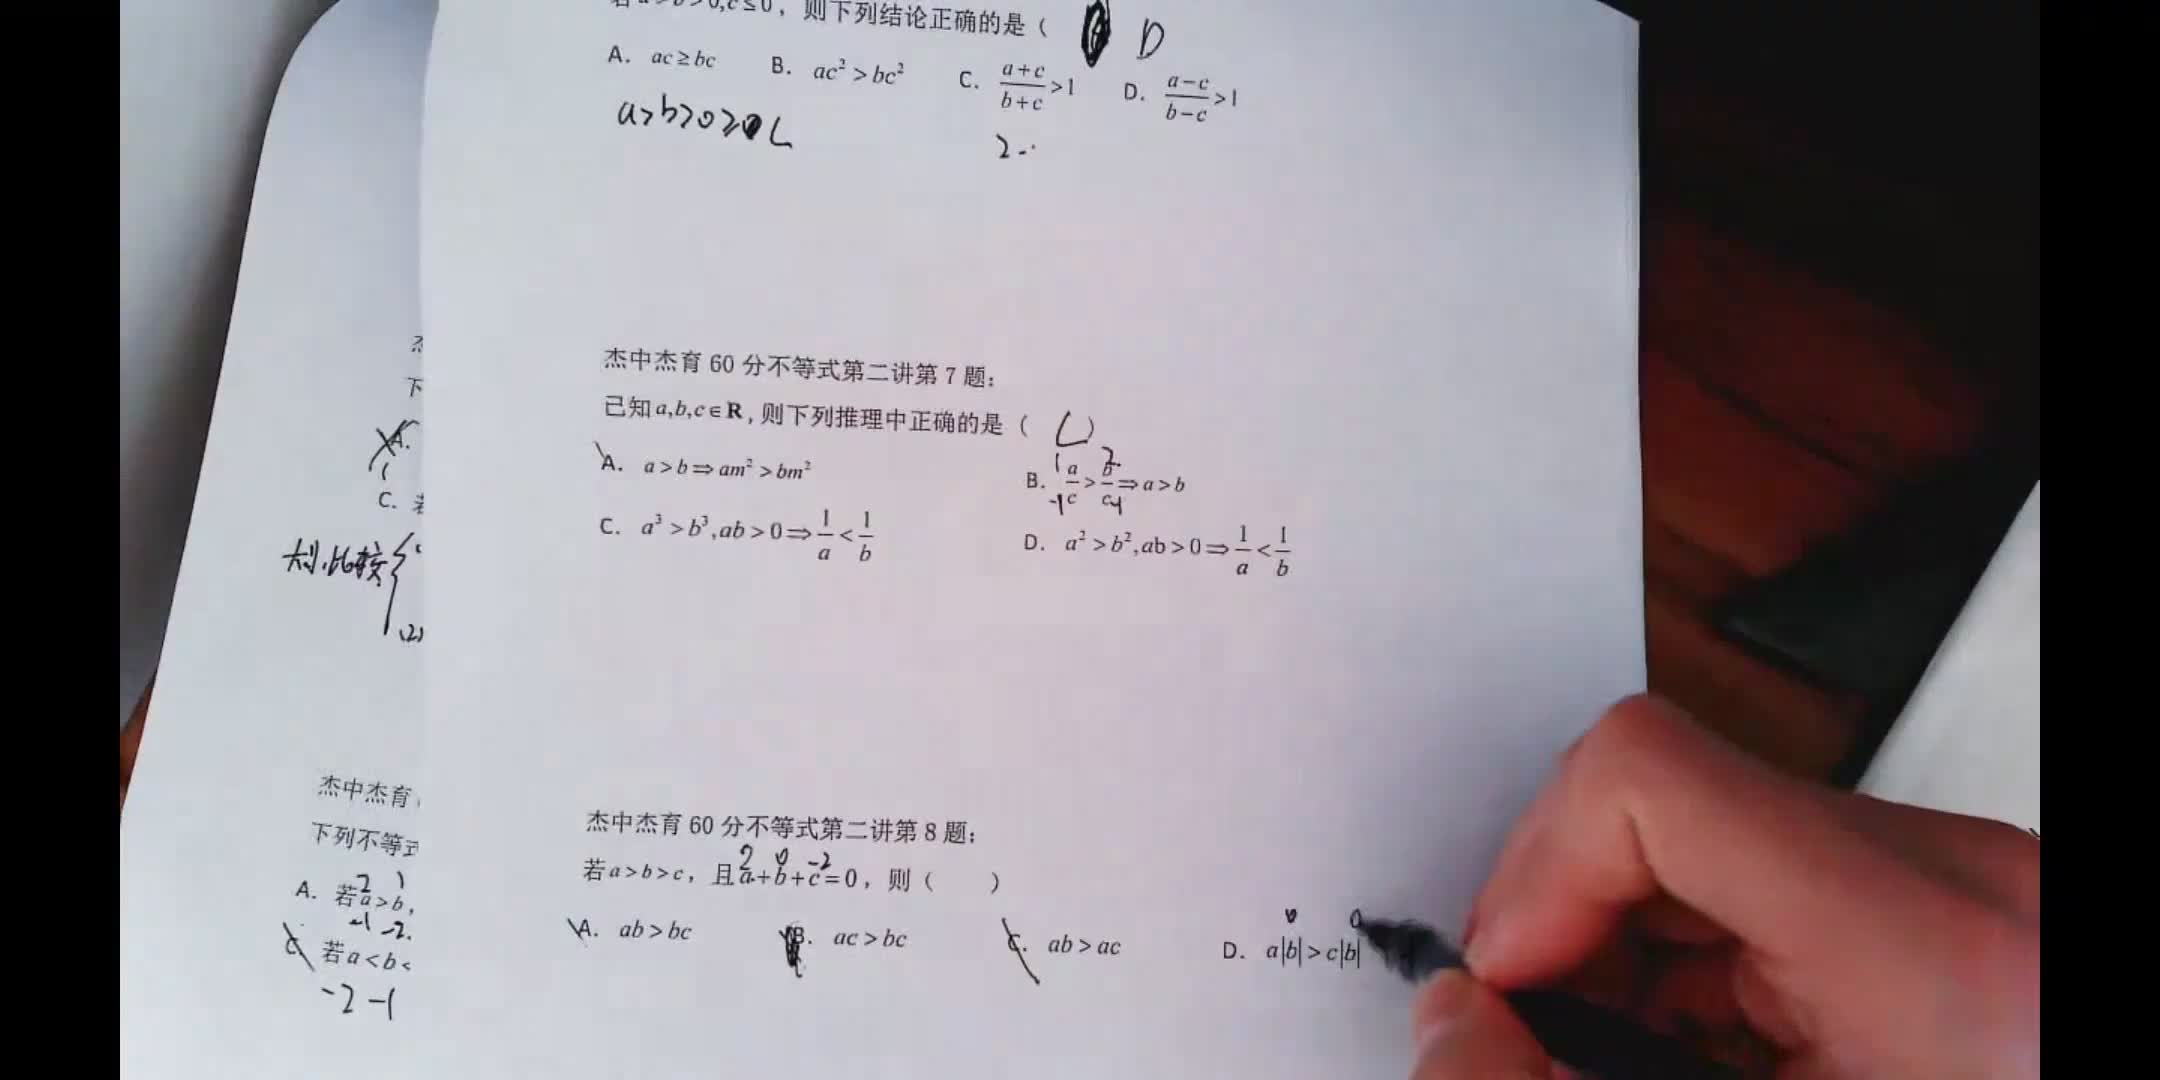 则下列结论正确的是（ D
A. ac≥bc B. ac²>bc² C. a+c/b+c>1 D. a-c/b-c>1
a>b>0≥ C
2-
杰中杰育60分不等式第二讲第7题：
已知a,b,c∈R,则下列推理中正确的是（ C ）
A. a>b⇒am²>bm² B. a/c>b/c⇒a>b
1 2
-1 -1
C. a³>b³,ab>0⇒1/a<1/b D. a²>b²,ab>0⇒1/a<1/b
杰中杰育60分不等式第二讲第8题：
2 0 -2
若a>b>c，且a+b+c=0，则（ ）
0 0
A. ab>bc B. ac>bc C. ab>ac D. a|b|>c|b|
下
A.
1
C. 若
比较
(2)
杰中杰育
下列不等式
2 1
A. 若a>b,
-1 -2
C. 若a<b<
-2 -1